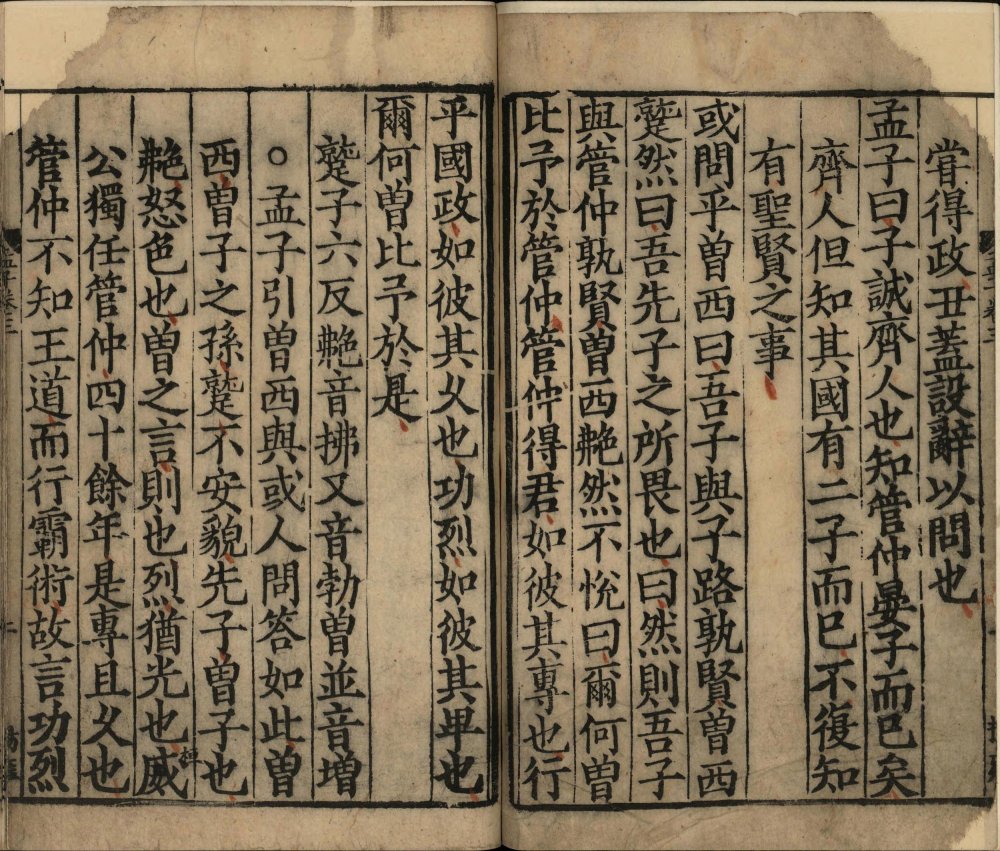 嘗得政丑蓋設辭以問也
孟子曰子誠齊人也知管仲晏子而已矣
齊人但知其國有二子而已不復知
有聖賢之事
或問乎曽西曰吾子與子路孰賢曽西
蹵然曰吾先子之所畏也曰然則吾子
與管仲孰賢曽西艴然不悅曰爾何曽
比予於管仲管仲得君如彼其專也行
乎國政如彼其久也功烈如彼其卑也
爾何曽比予於是
蹵子六反艴音拂又音勃曽並音増
○孟子引曽西與或人問答如此曽
西曽子之孫蹵不安貌先子曽子也
艴怒色也曽之言則也烈猶光也威
公獨任管仲四十餘年是專且久也
管仲不知王道而行霸術故言功烈